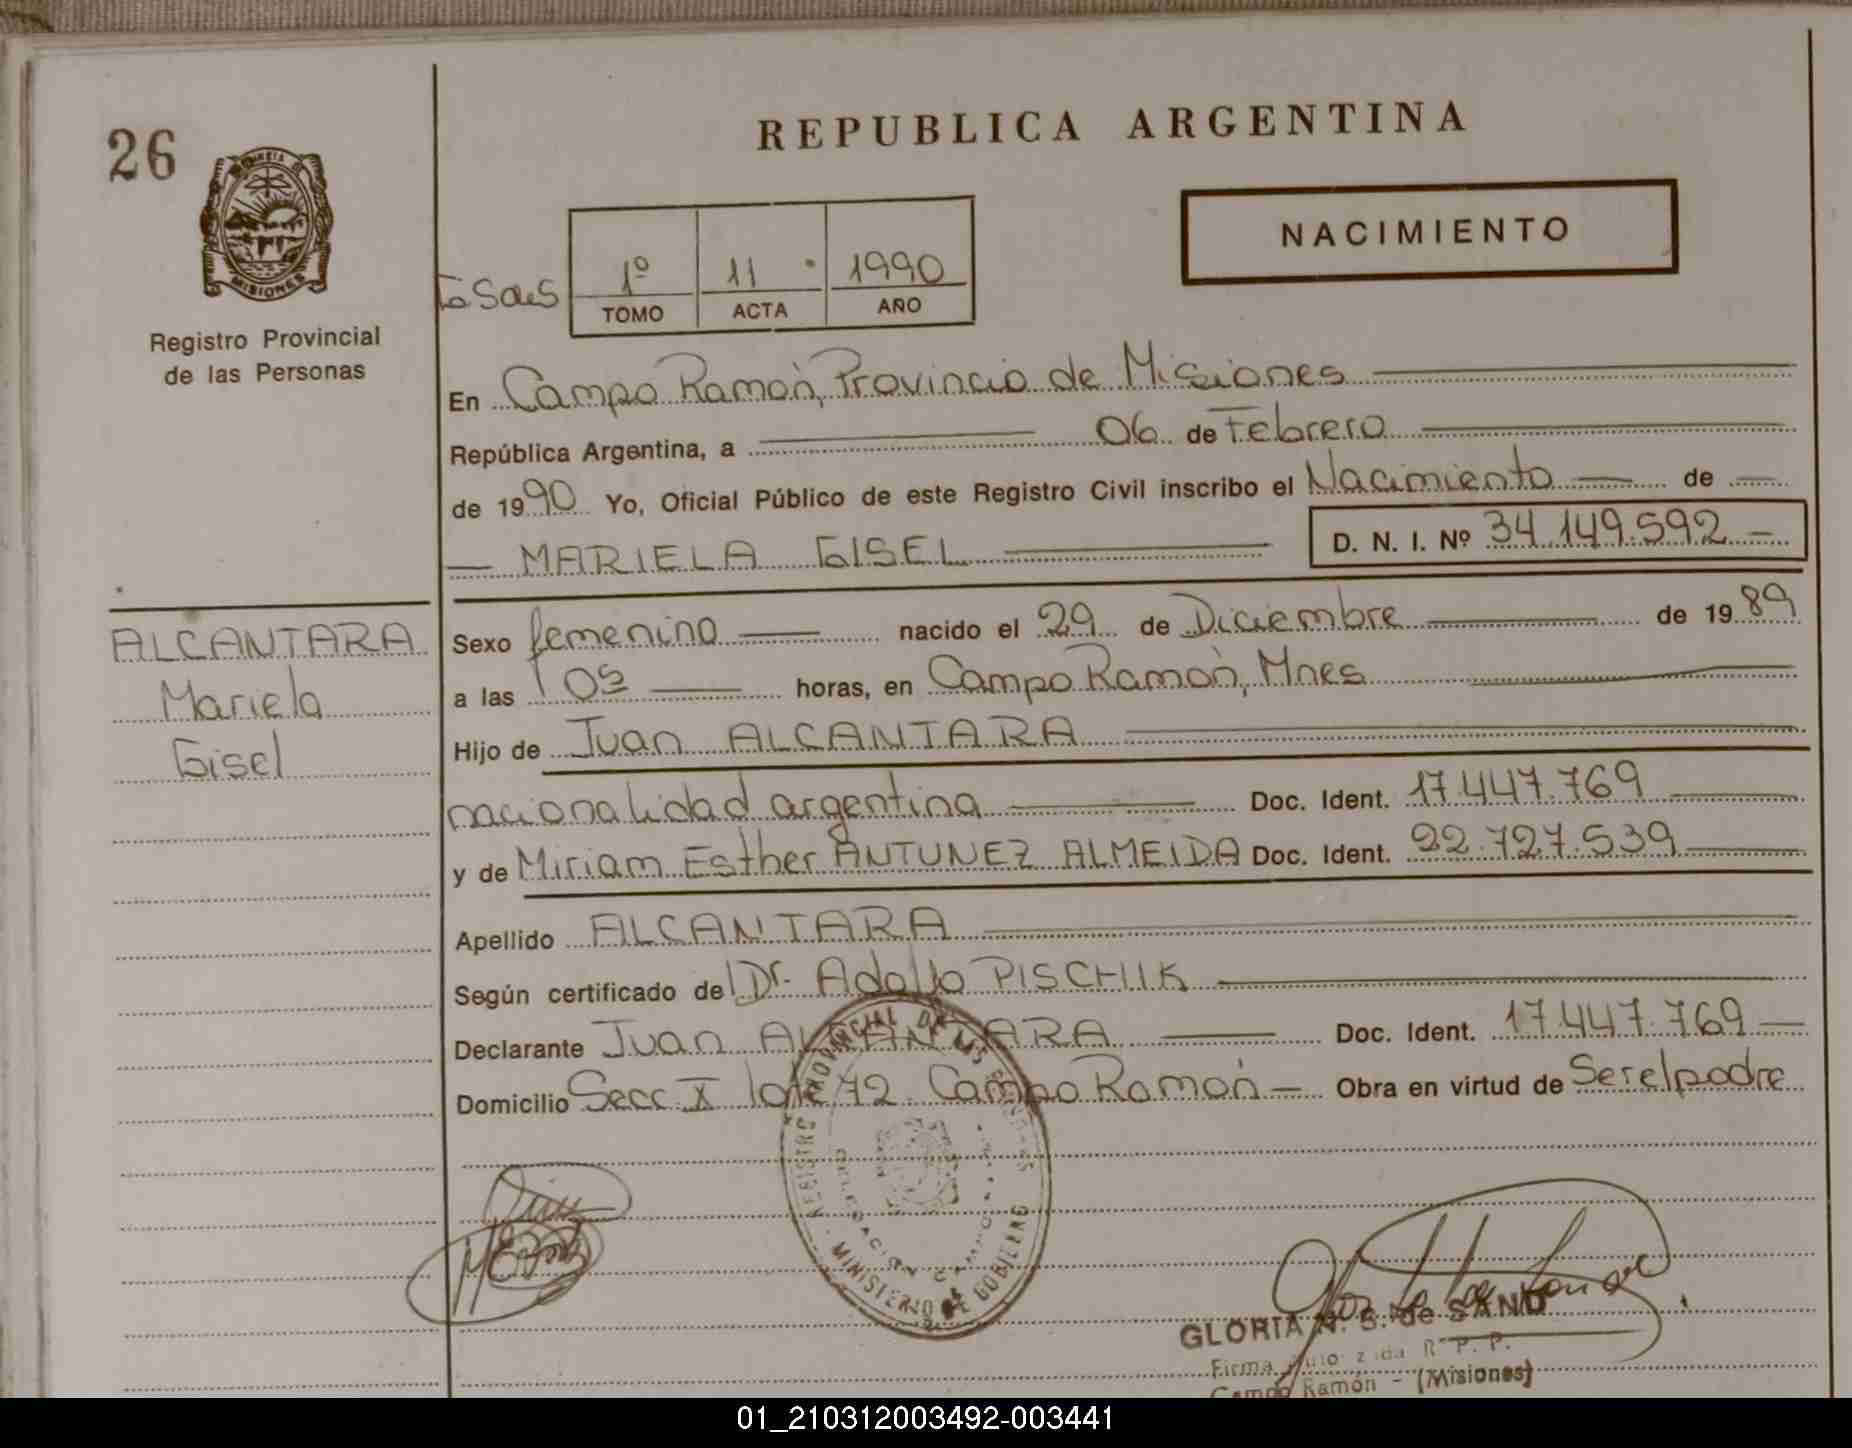 26
REPUBLICA ARGENTINA
NACIMIENTO
MISIONES
Registro Provincial
de las Personas
1º 11 1990
TOMO ACTA AÑO
En Campo Ramón, Provincia de Misiones
República Argentina, a 06 de Febrero
de 1990 Yo, Oficial Público de este Registro Civil inscribo el Nacimiento de
MARIELA GISEL D. N. I. Nº 34.149.592
ALCANTARA
Mariela
Gisel
Sexo femenino nacido el 29 de Diciembre de 1989
a las horas, en Campo Ramón, Mnes
Hijo de Juan ALCANTARA
nacionalidad argentina Doc. Ident. 17.447.769
y de Miriam Esther ANTUNEZ ALMEIDA Doc. Ident. 22.727.539
Apellido ALCANTARA
Según certificado de Dr. Adolfo PISCHIK
Declarante Juan ALCANTARA Doc. Ident. 17.447.769
Domicilio Secc X lote 72 Campo Ramón Obra en virtud de Ser el padre
REGISTRO PROVINCIAL DE LAS PERSONAS
MINISTERIO DE GOBIERNO
GLORIA N. S. de SAND
Firma Autorizada R. P. P.
Campo Ramón - (Misiones)
01_210312003492-003441